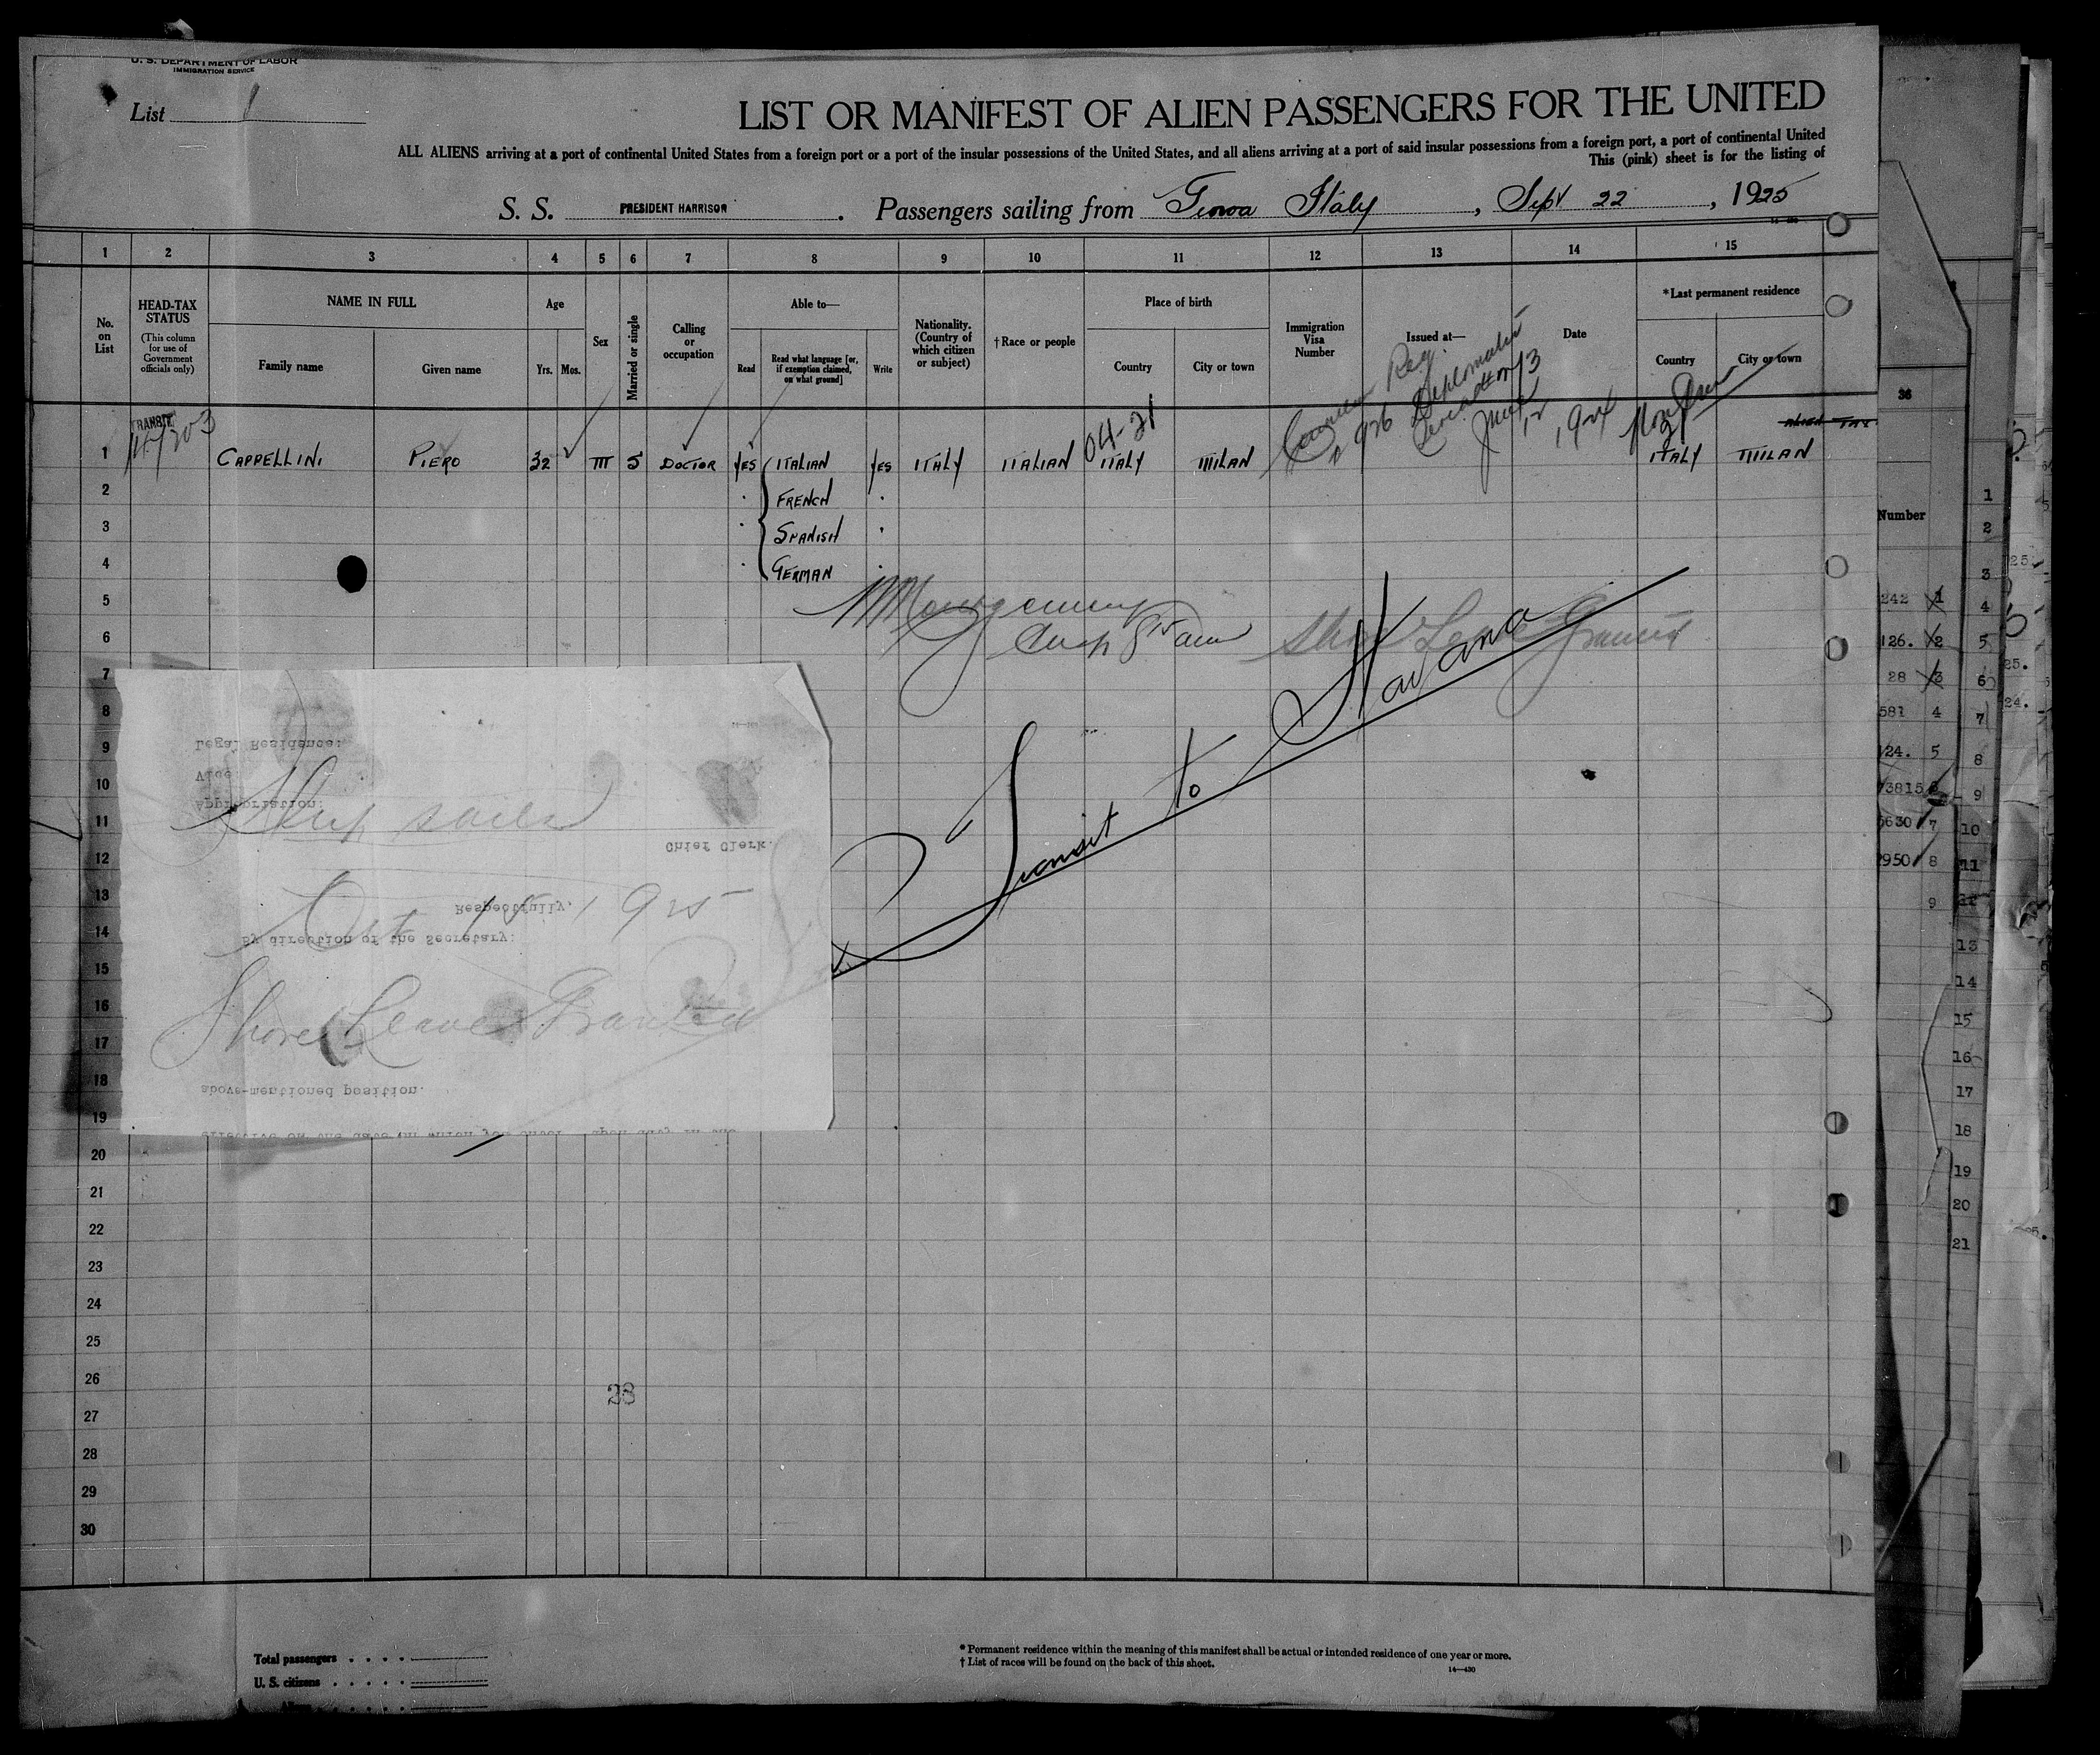 U. S. DEPARTMENT OF LABOR
IMMIGRATION SERVICE
List 1
LIST OR MANIFEST OF ALIEN PASSENGERS FOR THE UNITED
ALL ALIENS arriving at a port of continental United States from a foreign port or a port of the insular possessions of the United States, and all aliens arriving at a port of said insular possessions from a foreign port, a port of continental United
This (pink) sheet is for the listing of
S. S. PRESIDENT HARRISON. Passengers sailing from Genoa Italy, Sept 22, 1925
1 2 3 4 5 6 7 8 9 10 11 12 13 14 15
No. on List
HEAD-TAX STATUS
(This column for use of Government officials only)
NAME IN FULL
Family name Given name
Age
Yrs. Mos.
Sex
Married or single
Calling or occupation
Able to—
Read Read what language [or, if exemption claimed, on what ground] Write
Nationality. (Country of which citizen or subject)
†Race or people
Place of birth
Country City or town
Immigration Visa Number
Issued at—
Date
*Last permanent residence
Country City or town
TRANSIT
04-21
1 CAPPELLINI PIERO 32 M S DOCTOR YES ITALIAN YES ITALY ITALIAN ITALY MILAN ITALY MILAN
2 FRENCH
3 SPANISH
4 GERMAN
5 Montgomery
6 Shore Leave Granted
7
8
9 Legal Residence:
Vice:
10 Appropriation:
11 Ship sails
12 Chief Clerk.
13 Respectfully,
Oct 15 1925
14 By direction of the Secretary:
15
16 Shore Leave Granted
17
18 above-mentioned position.
19 effective on the date on which you enter upon duty in the
Transit to Havana
20
21
22
23
24
25
26
28
27
28
29
30
Total passengers
U. S. citizens
Aliens
* Permanent residence within the meaning of this manifest shall be actual or intended residence of one year or more.
† List of races will be found on the back of this sheet.
14—430
36
Number
242 1
126. 2
28 3
581 4
124. 5
73815 6
5630 7
2950 8
9
1
2
3
4
5
6
7
8
9
10
11
12
13
14
15
16
17
18
19
20
21